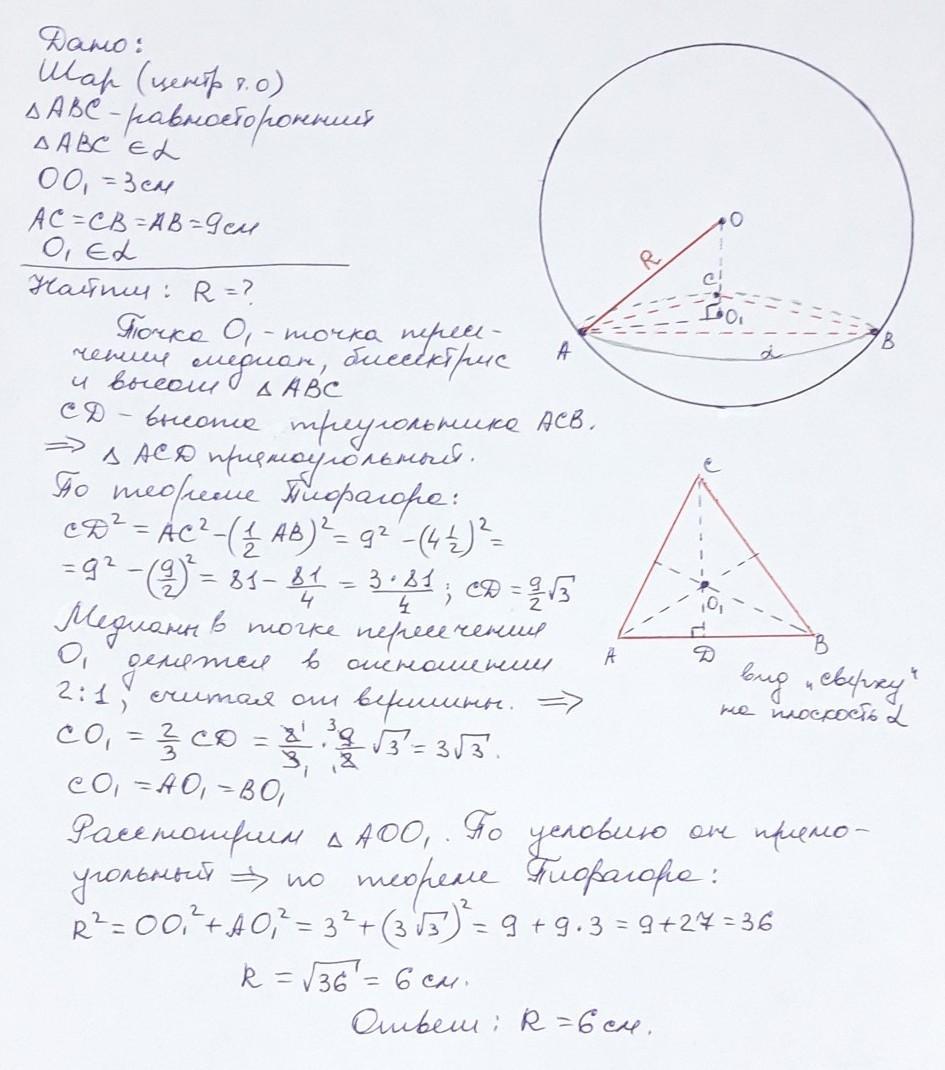 Дано:
Шар (центр т.О)
△ABC - равносторонний
△ABC ∈ α
OO₁ = 3см
AC = CB = AB = 9см
O₁ ∈ α
Найти: R = ?
Точка O₁ - точка пересе-
чения медиан, биссектрис
и высот △ABC
CD - высота треугольника ACB.
⇒ △ACD прямоугольный.
По теореме Пифагора:
CD² = AC² - (1/2 AB)² = 9² - (4 1/2)² =
= 9² - (9/2)² = 81 - 81/4 = 3·81/4 ; CD = 9/2 √3
Медианы в точке пересечения
O₁ делятся в отношении
2:1, считая от вершины. ⇒
CO₁ = 2/3 CD = 2/3 · 9/2 √3 = 3√3.
1
3
1
1
CO₁ = AO₁ = BO₁
Рассмотрим △AOO₁. По условию он прямо-
угольный ⇒ по теореме Пифагора:
R² = OO₁² + AO₁² = 3² + (3√3)² = 9 + 9·3 = 9 + 27 = 36
R = √36 = 6 см.
Ответ: R = 6 см.
O
R
C
O₁
A
α
B
C
O₁
A
D
B
вид „сверху"
на плоскость α